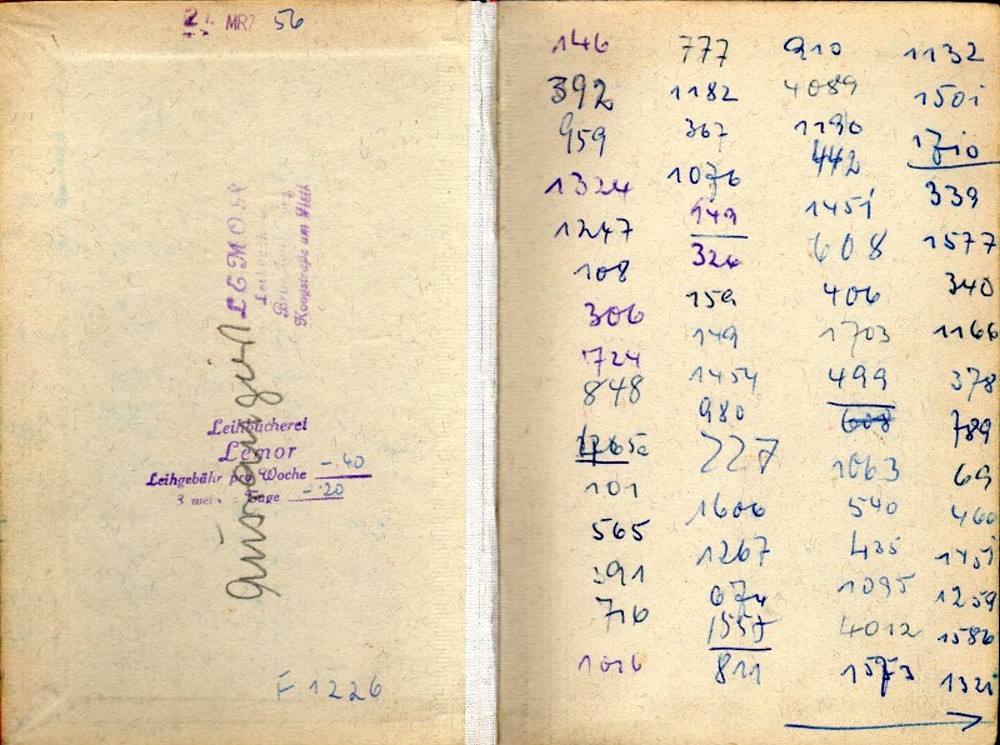 21. MRZ 56
LEMOR
Koogstraße am Fleth
ausrangiert
Leihbücherei
Lemor
Leihgebühr pro Woche -.40
Tage -.20
F 1226
146 777 910 1132
392 1182 4089 1501
959 367 1190 1710
1324 1076 442 339
1247 149 1451 1577
108 326 608 340
306 159 406 1166
724 149 1703 378
848 1454 499 789
980 608 69
101 227 1063 460
565 1606 540 1451
391 1267 435 1259
716 674 1095 1586
1016 1557 4012 1321
811 1573